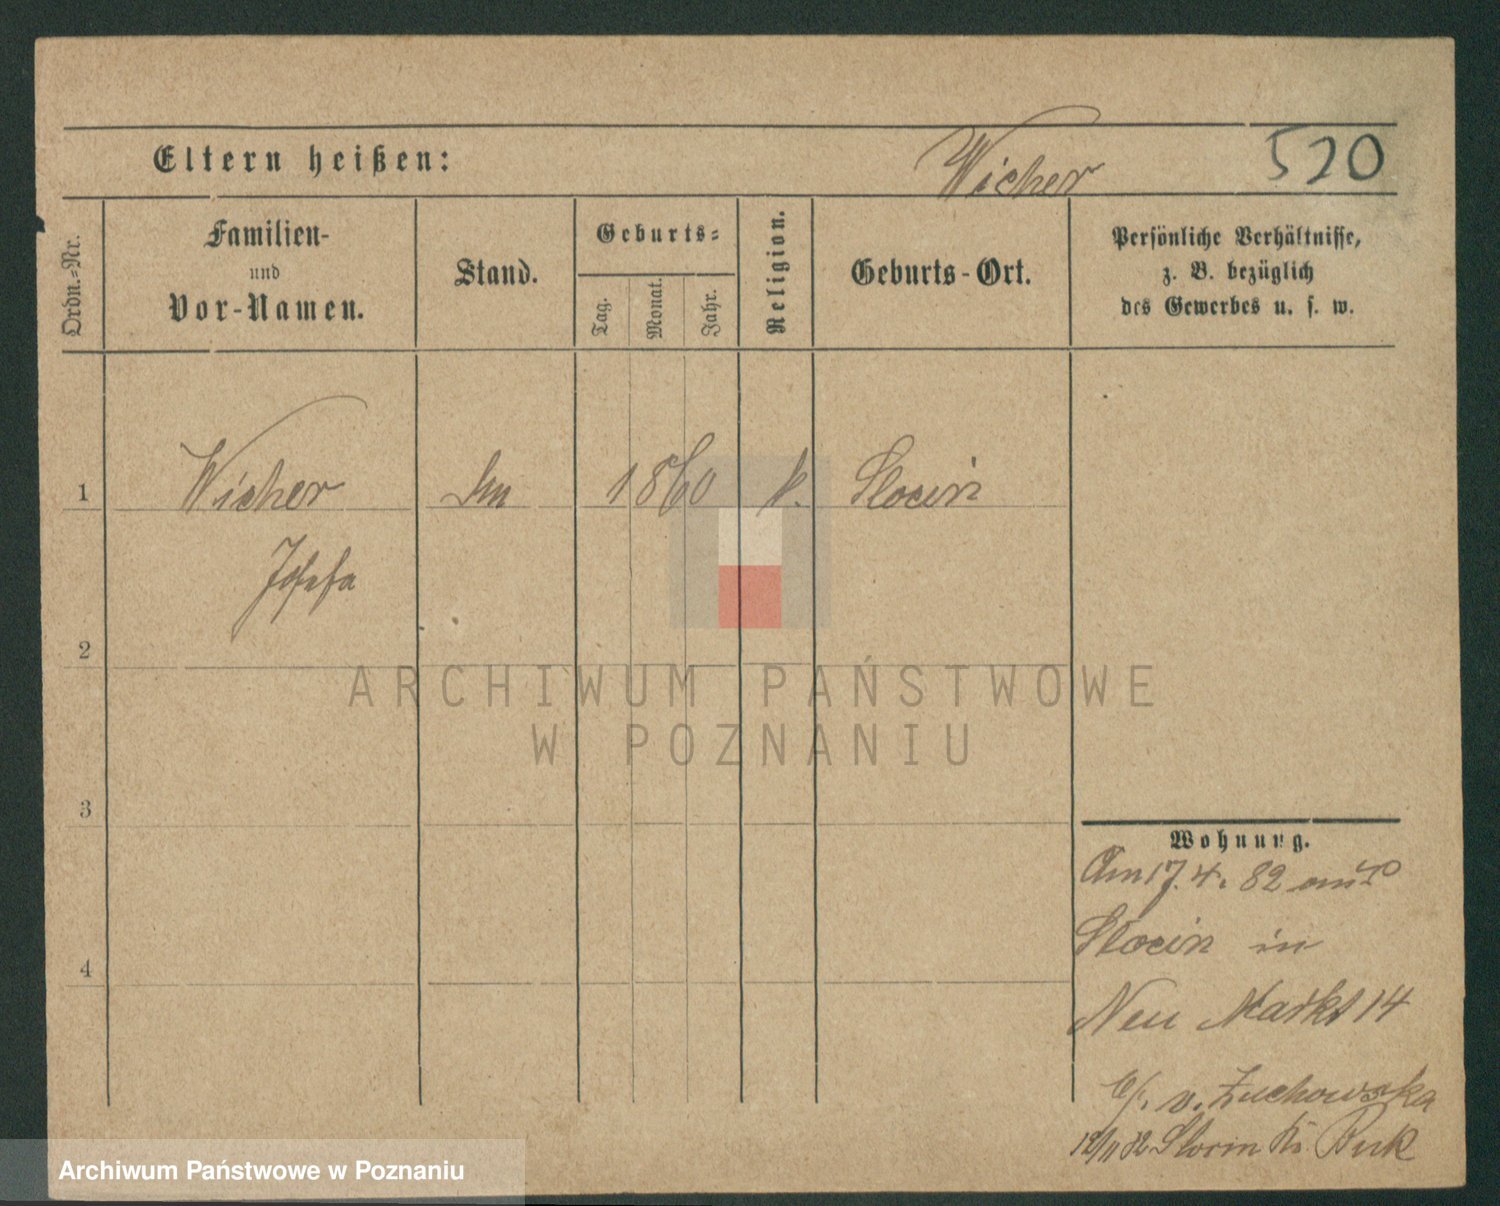 Wicher 520
Eltern heißen:
Ordn.-Nr.
Familien-
und
Vor-Namen.
Stand.
Geburts-
Tag.
Monat.
Jahr.
Religion.
Geburts-Ort.
Persönliche Verhältnisse,
z. B. bezüglich
des Gewerbes u. s. w.
1 Wicher 1860 k. Slocin
Josefa
2
3
4
Wohnung.
Am 17. 4. 82 aus
Slocin in
Neu Markt 14
b/. v. Zuchowska
12/11 82 Slocin Kr. Buk
ARCHIWUM PAŃSTWOWE
W POZNANIU
Archiwum Państwowe w Poznaniu